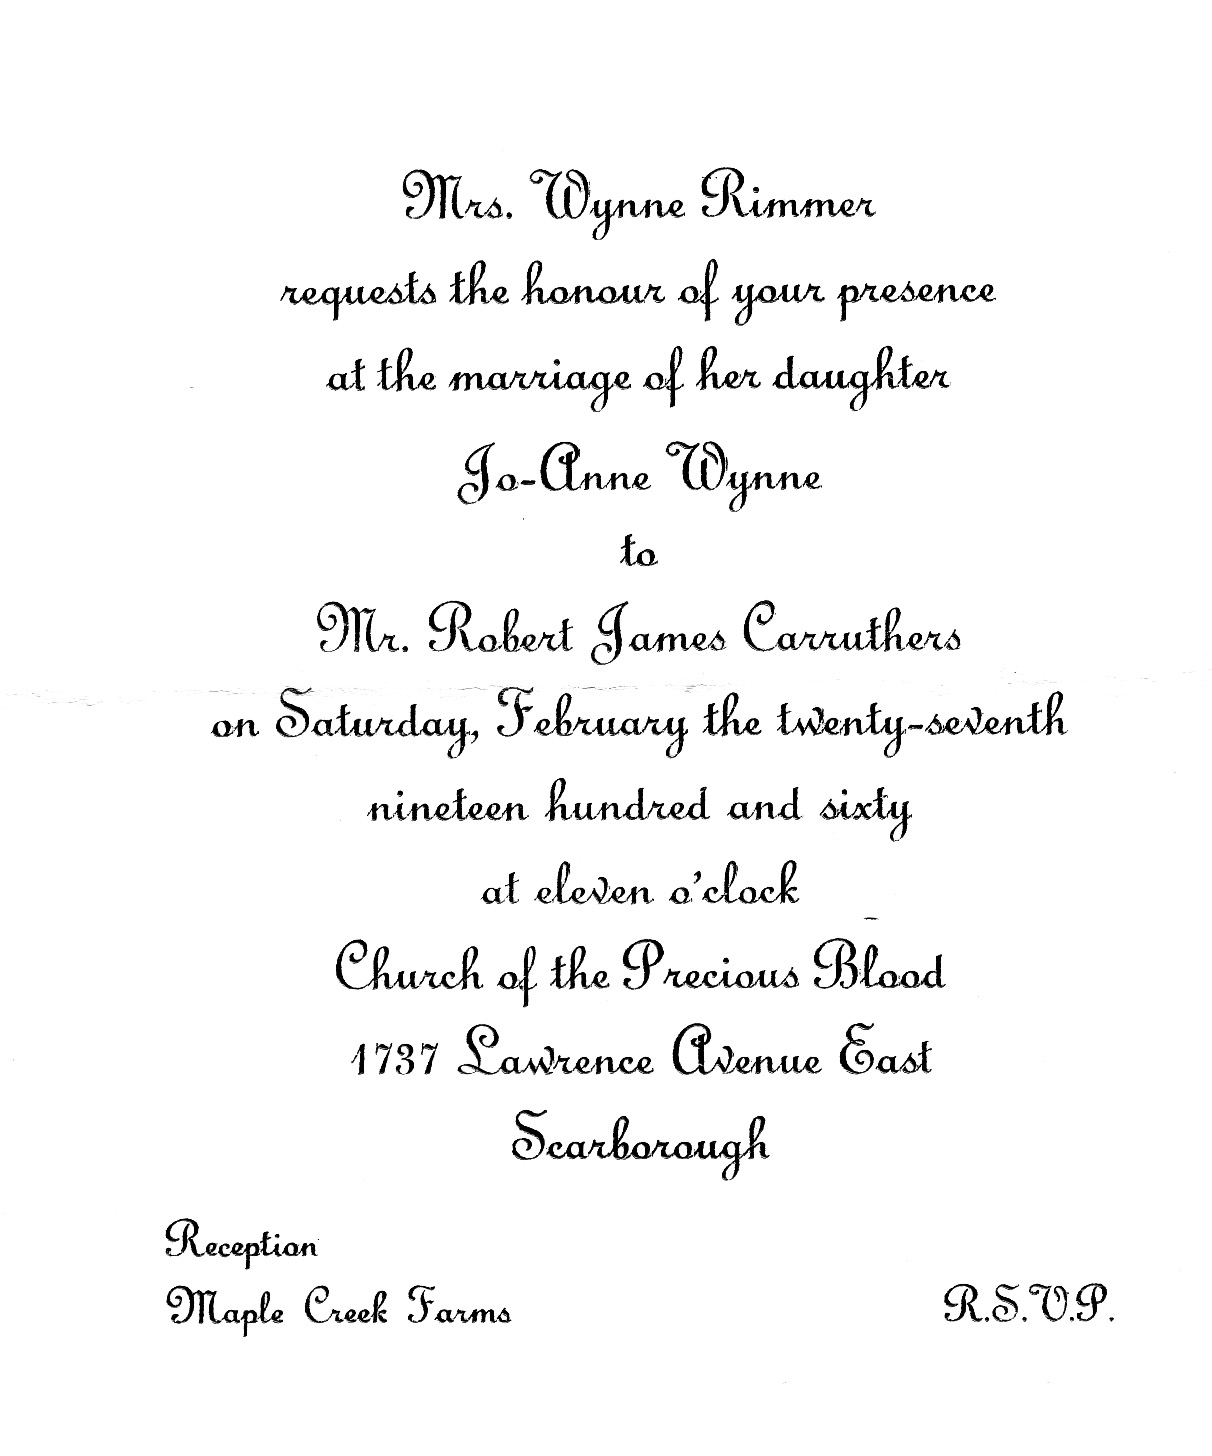 Mrs. Wynne Rimmer
requests the honour of your presence
at the marriage of her daughter
Jo-Anne Wynne
to
Mr. Robert James Carruthers
on Saturday, February the twenty-seventh
nineteen hundred and sixty
at eleven o'clock
Church of the Precious Blood
1737 Lawrence Avenue East
Scarborough
Reception
Maple Creek Farms
R.S.V.P.